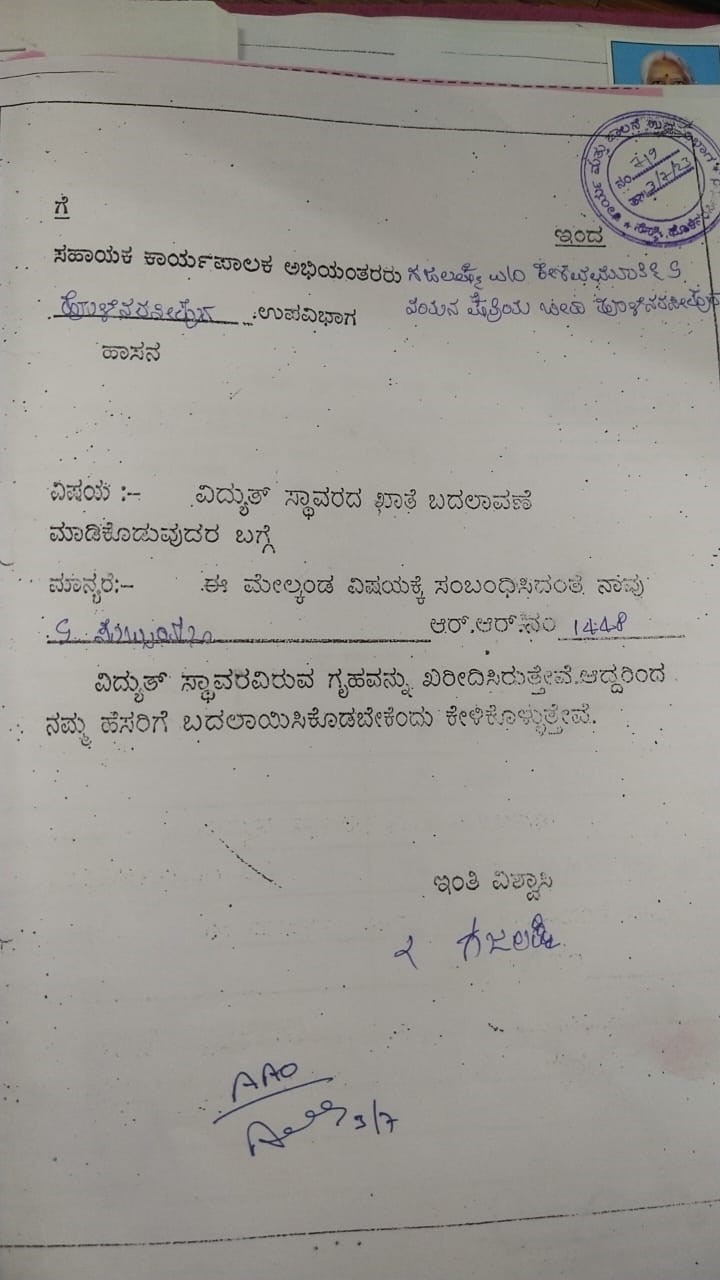 ನಂ. 719
ದಿ: 3/7/23
ಗೆ
ಇಂದ
ಸಹಾಯಕ ಕಾರ್ಯಪಾಲಕ ಅಭಿಯಂತರರು ಗಜಲಕ್ಷ್ಮಿ W/O
ಹೊಳೆನರಸೀಪುರ ಉಪವಿಭಾಗ
ಹೊಳೆನರಸೀಪುರ
ಹಾಸನ
ವಿಷಯ :- ವಿದ್ಯುತ್ ಸ್ಥಾವರದ ಖಾತೆ ಬದಲಾವಣೆ
ಮಾಡಿಕೊಡುವುದರ ಬಗ್ಗೆ
ಮಾನ್ಯರೆ:- ಈ ಮೇಲ್ಕಂಡ ವಿಷಯಕ್ಕೆ ಸಂಬಂಧಿಸಿದಂತೆ ನಾವು
ಆರ್.ಆರ್.ನಂ 1448
ವಿದ್ಯುತ್ ಸ್ಥಾವರವಿರುವ ಗೃಹವನ್ನು ಖರೀದಿಸಿರುತ್ತೇವೆ.ಆದ್ದರಿಂದ
ನಮ್ಮ ಹೆಸರಿಗೆ ಬದಲಾಯಿಸಿಕೊಡಬೇಕೆಂದು ಕೇಳಿಕೊಳ್ಳುತ್ತೇವೆ.
ಇಂತಿ ವಿಶ್ವಾಸಿ
ಗಜಲಕ್ಷ್ಮಿ
AAO
3/7